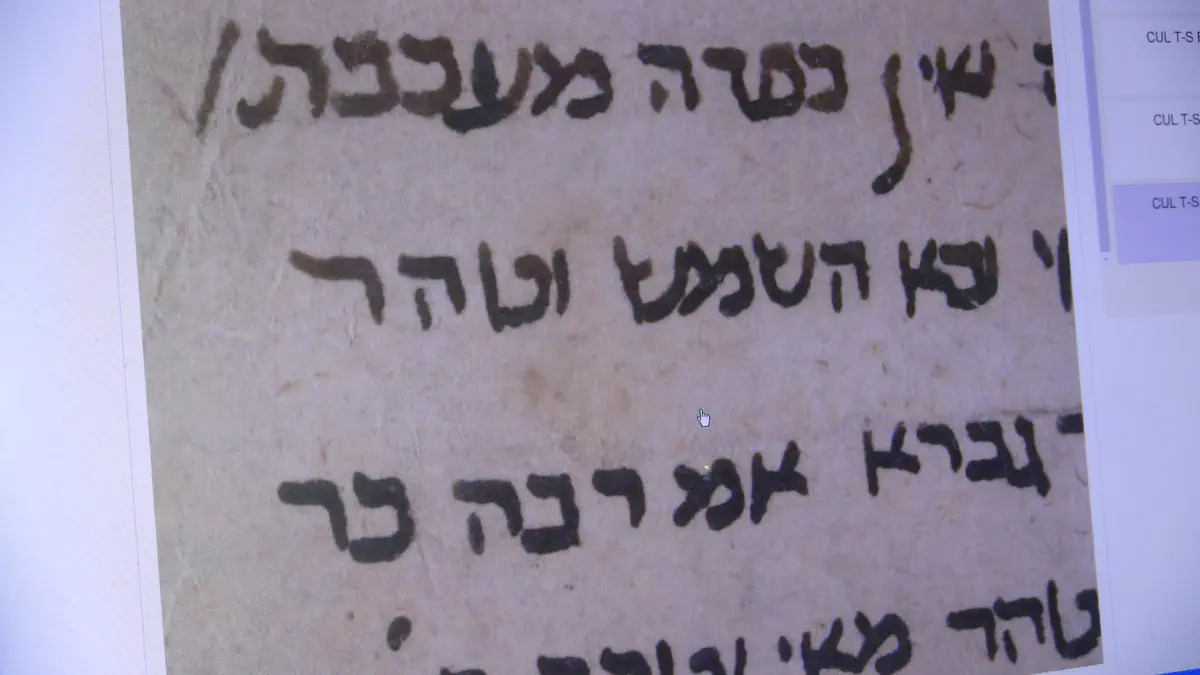 אין כפרה מעכבת/
ובא השמש וטהר
גברא אמ רבה בר
טהר מאי
CUL T-S
CUL T-S
CUL T-S